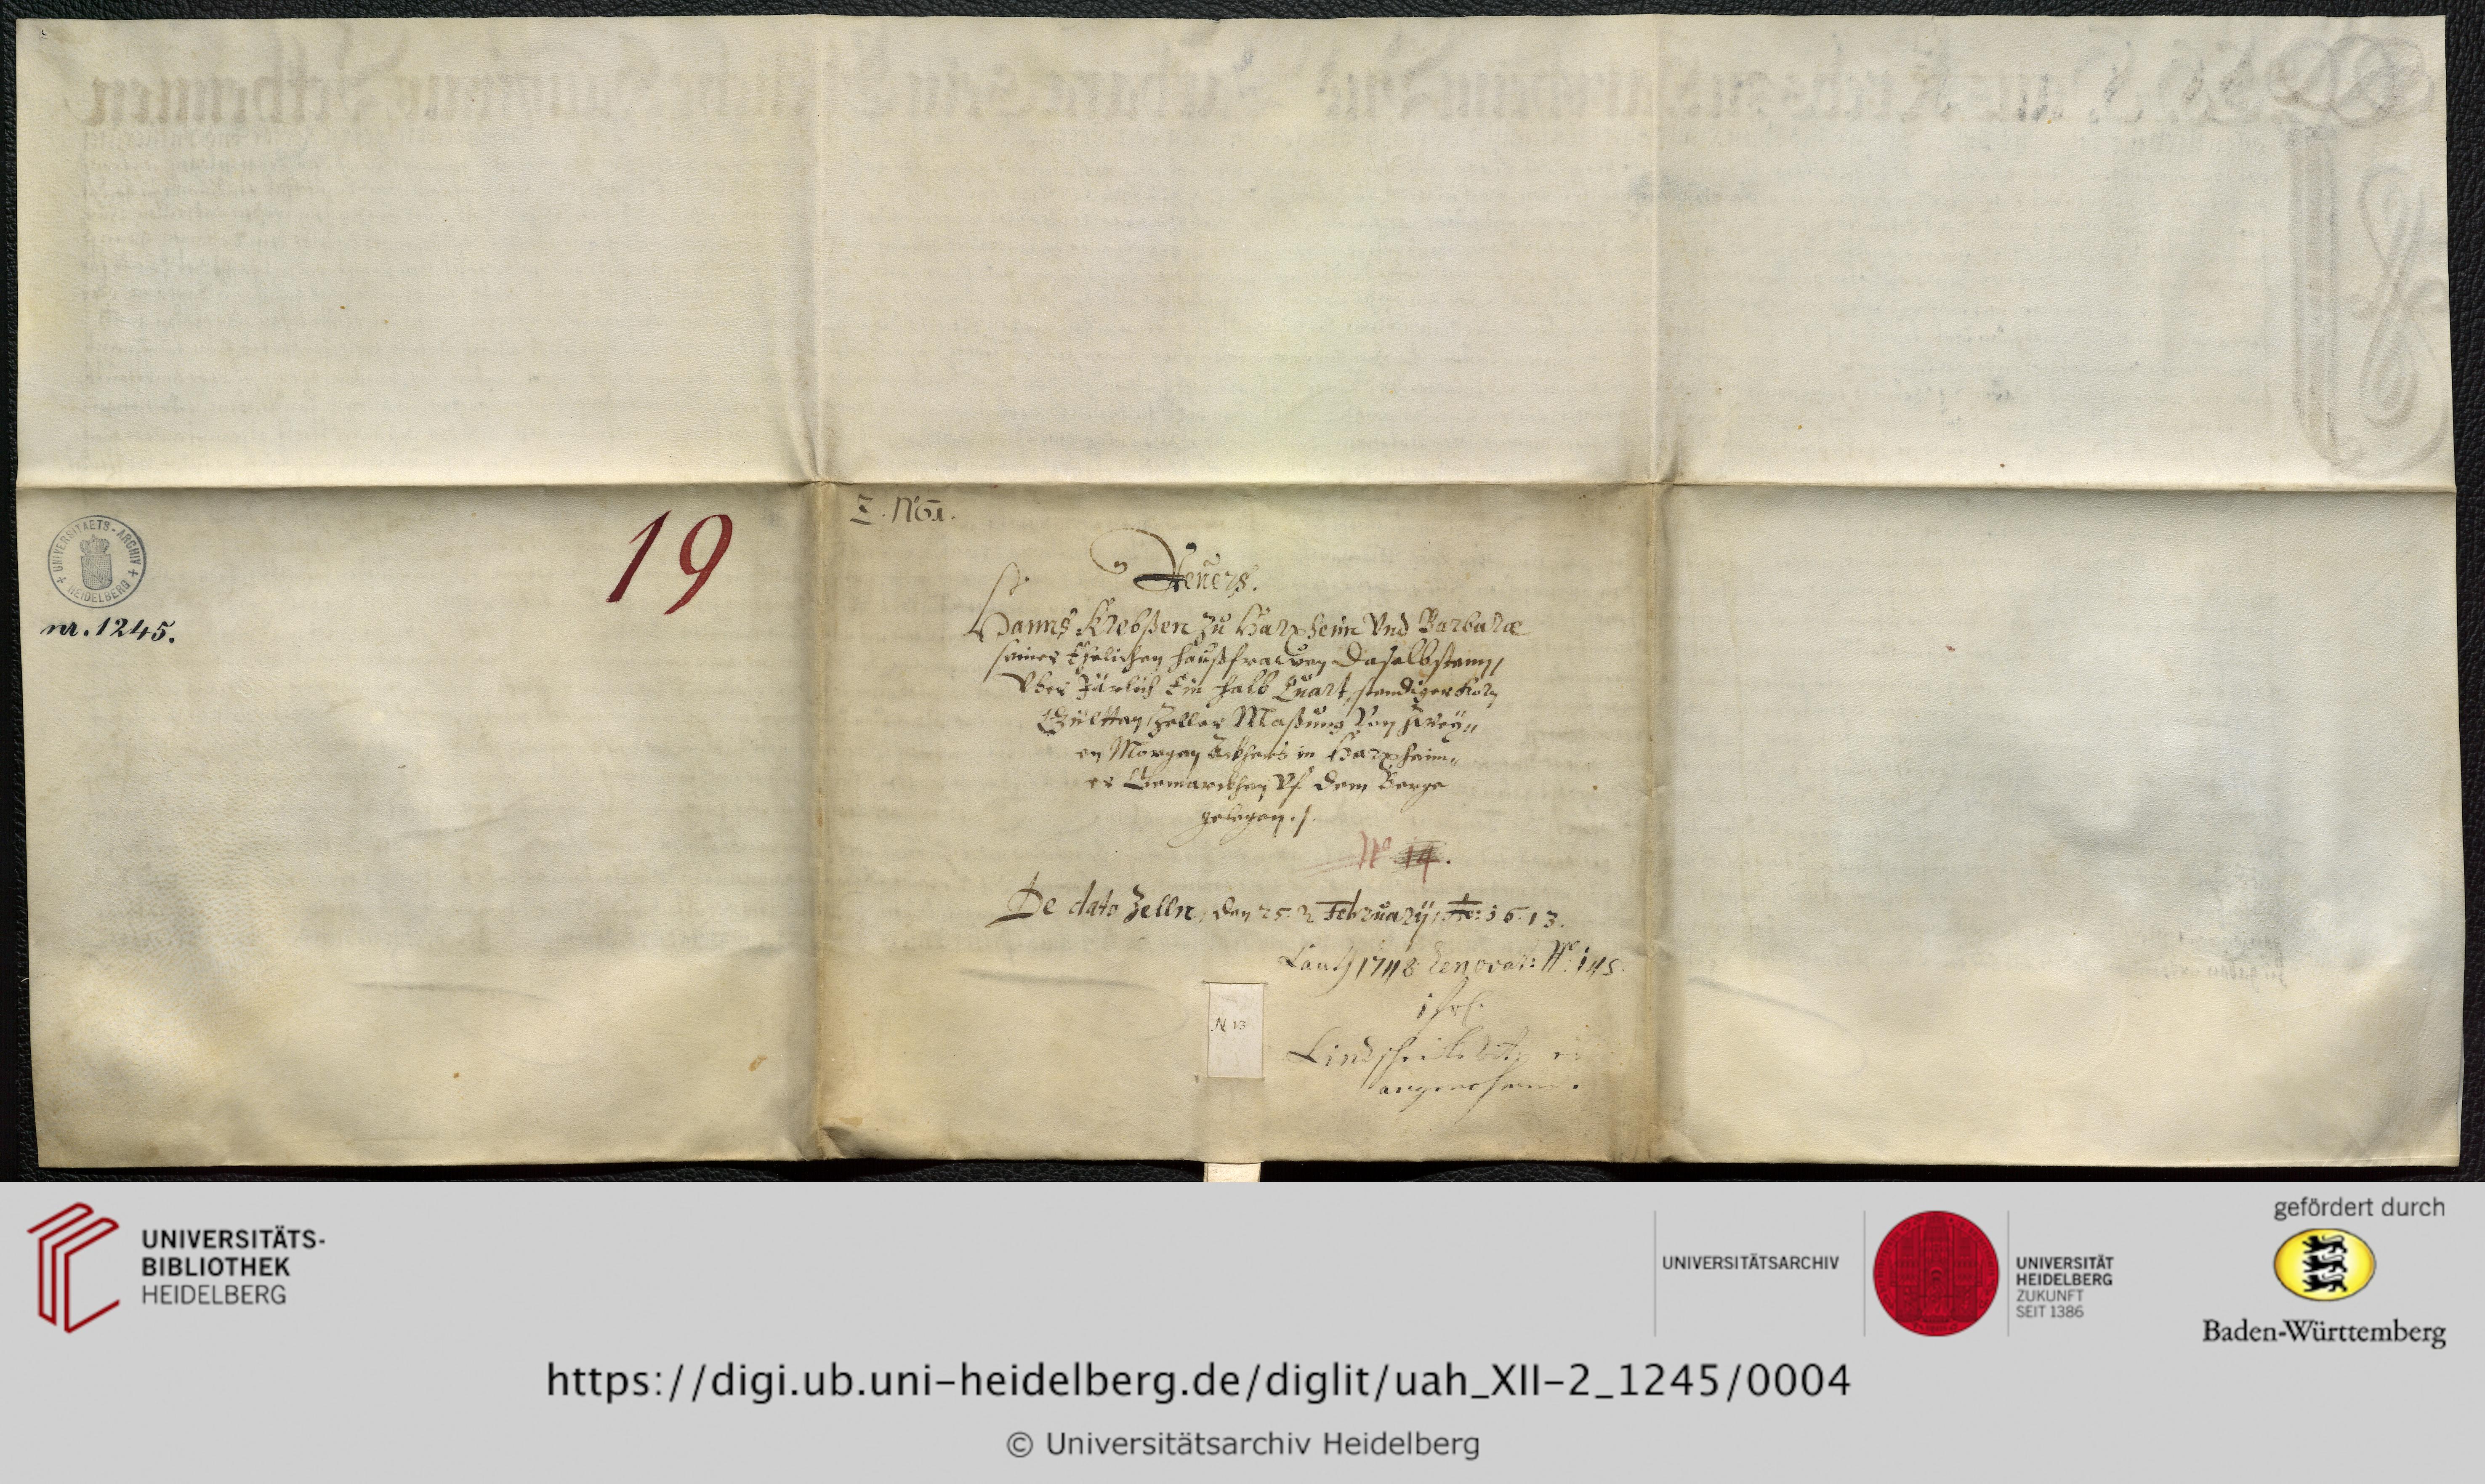 19
Z. No 1.
UNIVERSITAETS-ARCHIV + HEIDELBERG +
nr. 1245.
Reuers.
Hanns Krebßen zu Harxheim Vnd Barbaræ
seiner Ehelichen haußfrawen daselbsten,
Vber Järlich Ein halb Quart stendiger Korn
Gültten, Zeller Maßung Von zwey„
en Morgen Ackhers in Harxheim„
er Gemarckhen Vf dem Berge
gelegen./.
No 14.
De dato Zelln, den 25. Februarÿ, Ao: 1613.
Lauth 1748 Renovat: No: 145
N. 13
UNIVERSITÄTS-
BIBLIOTHEK
HEIDELBERG
UNIVERSITÄTSARCHIV
UNIVERSITÄT
HEIDELBERG
ZUKUNFT
SEIT 1386
gefördert durch
Baden-Württemberg
https://digi.ub.uni-heidelberg.de/diglit/uah_XII-2_1245/0004
© Universitätsarchiv Heidelberg